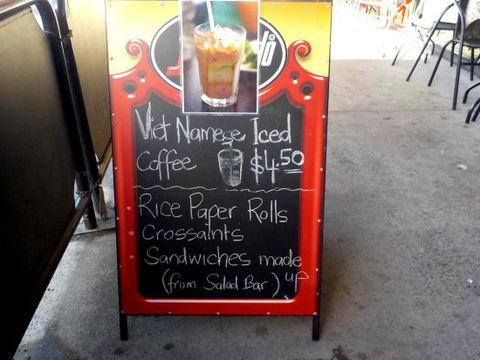 Viet Namese Iced
Coffee $4.50
Rice Paper Rolls
Crossaints
Sandwiches made
(from Salad Bar) up